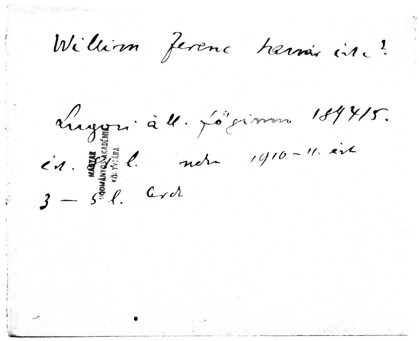 William Ferenc tanár
Lugosi áll. főgimn 1894/5.
ért. l. 1910-11. ért
3 – 5 l.
MAGYAR
TUDOMÁNYOS AKADÉMIA
KÖNYVTÁRA